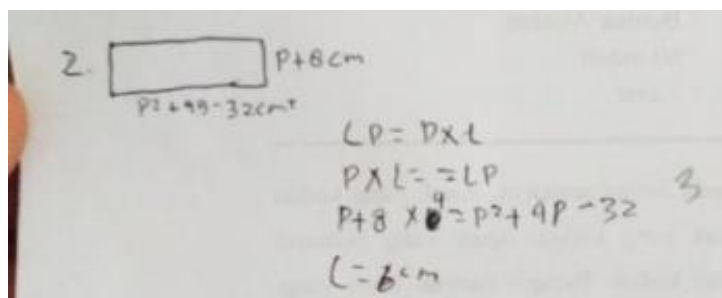 2.
P+8cm
P²+99-32cm²
LP = P×L
P×L = = LP
P+8 × 9 = P²+9P-32
3
L = 6cm